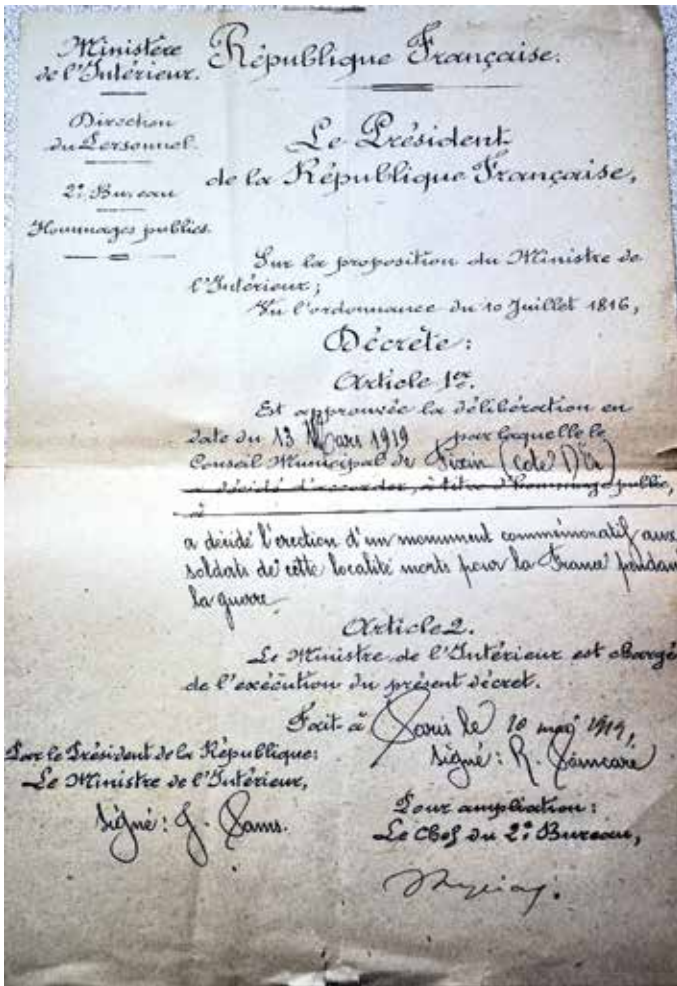 Ministère
de l'Intérieur.
Direction
du Personnel.
2e Bureau
Hommages publics.
République Française.
Le Président
de la République Française,
Sur la proposition du Ministre de
l'Intérieur;
Vu l'ordonnance du 10 Juillet 1816,
Décrète:
Article 1er.
Est approuvée la délibération en
date du 13 Mars 1919 par laquelle le
Conseil Municipal de Fixin (Côte D'Or)
a décidé d'accorder, à titre d'hommage public,
à
a décidé l'erection d'un monument commémoratif aux
soldats de cette localité morts pour la France pendant
la guerre
Article 2.
Le Ministre de l'Intérieur est chargé
de l'exécution du présent décret.
Fait à Paris le 10 mai 1919,
signé: R. Poincaré
Par le Président de la République:
Le Ministre de l'Intérieur,
signé: J. Pams.
Pour ampliation:
Le Chef du 2e Bureau,